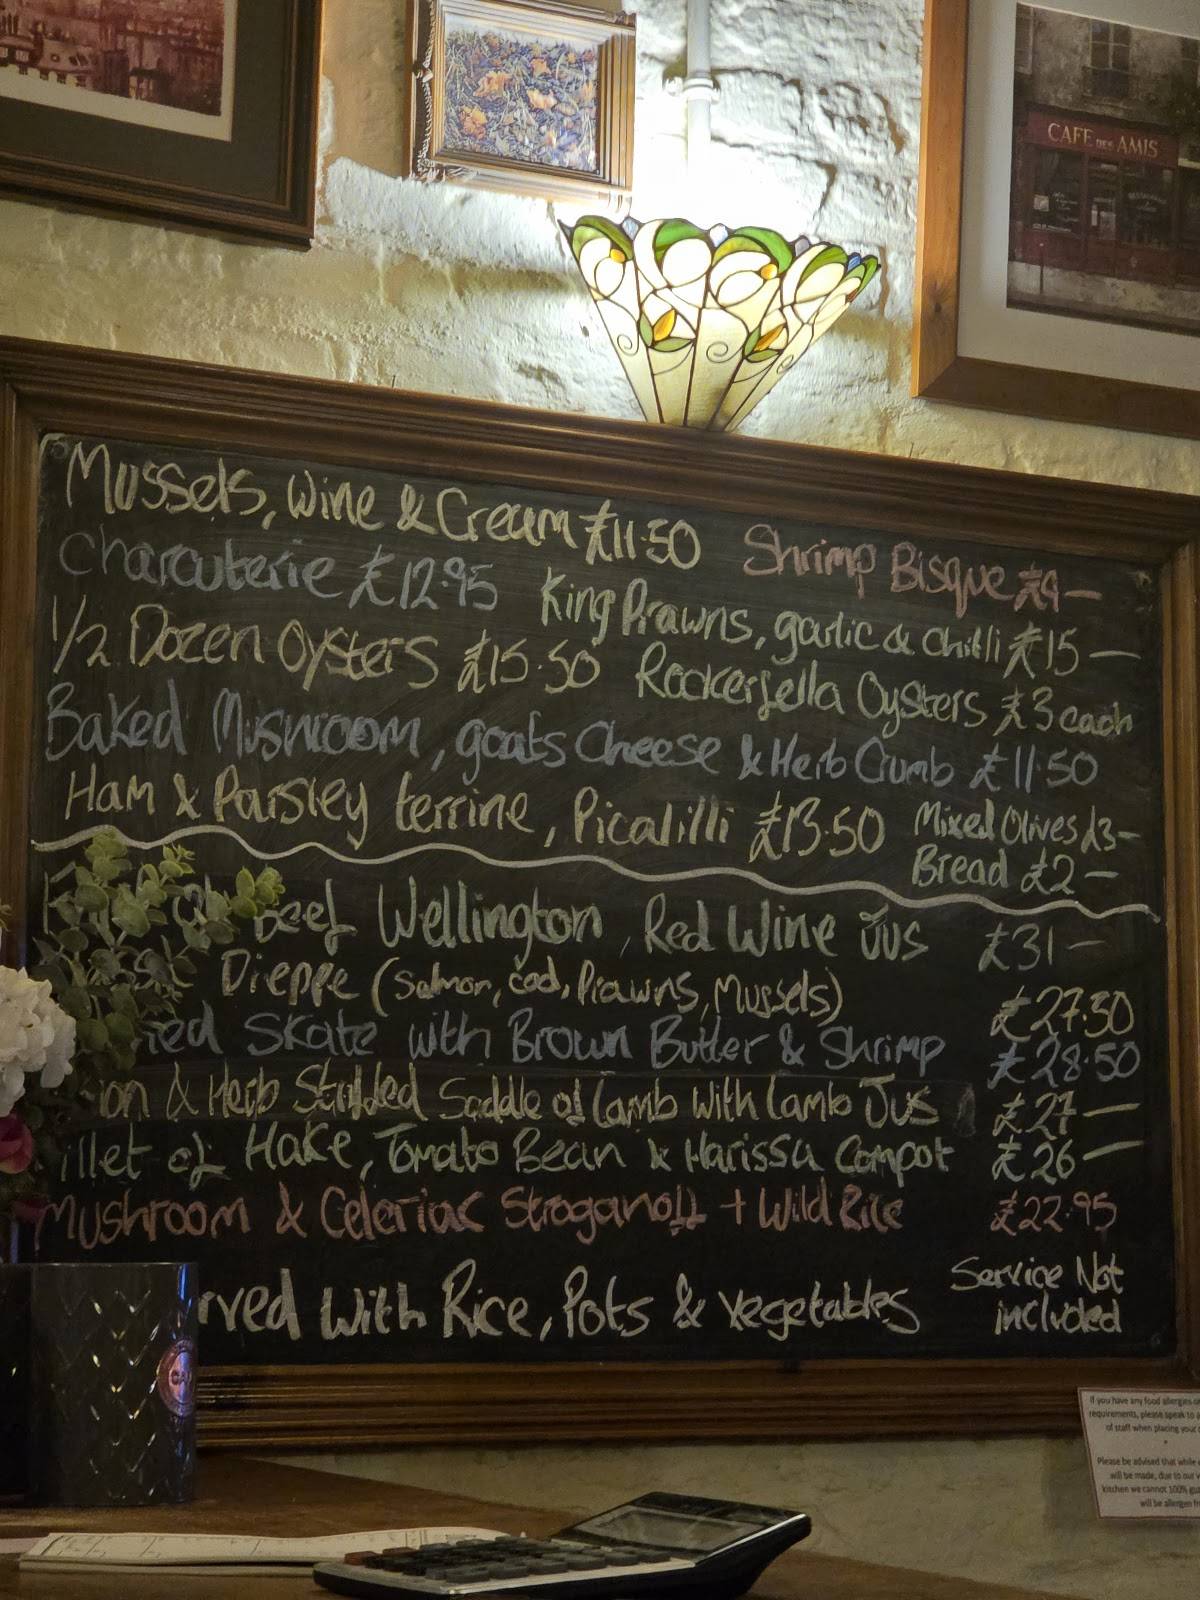 CAFE DES AMIS
Mussels, Wine & Cream £11.50
Shrimp Bisque £9—
Charcuterie £12.95
King Prawns, garlic & Chilli £15—
1/2 Dozen Oysters £15.50
Rockerfella Oysters £3 each
Baked Mushroom, goats Cheese & Herb Crumb £11.50
Ham & Parsley terrine, Picalilli £13.50
Mixed Olives £3—
Bread £2—
Beef Wellington, Red Wine Jus £31—
Dieppe (Salmon, cod, Prawns, Mussels) £27.50
Skate with Brown Butter & Shrimp £28.50
& Herb Stuffed Saddle of Lamb with Lamb Jus £27—
illet of Hake, Tomato Bean & Harissa Compot £26—
Mushroom & Celeriac Stroganoff + Wild Rice £22.95
rved with Rice, Pots & vegetables
Service Not
included
If you have any food allergies
requirements, please speak to
of staff when placing your
Please be advised that while
will be made, due to our
kitchen we cannot 100%
will be allergen